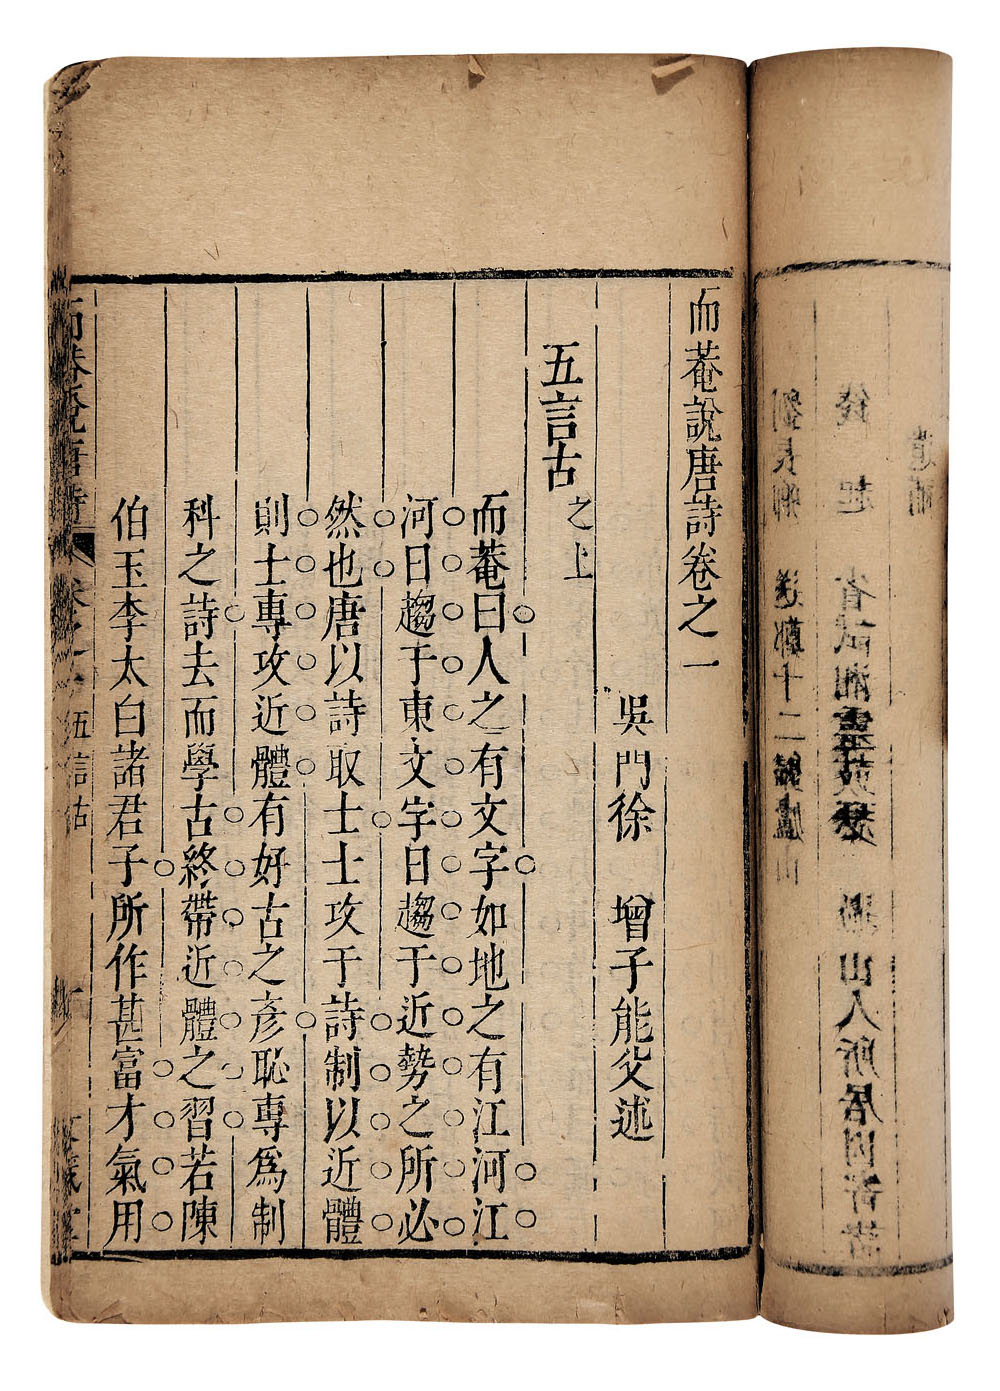 而菴說唐詩卷之一
吳門徐　增子能父述
五言古之上
而菴曰人之有文字如地之有江河江
河日趨于東文字日趨于近勢之所必
然也唐以詩取士士攻于詩制以近體
則士專攻近體有好古之彥恥專爲制
科之詩去而學古終帶近體之習若陳
伯玉李太白諸君子所作甚富才氣用
而菴說唐詩
五言古
劉長卿
送鄭十二歸廬山
錢　起
省試湘靈鼓瑟